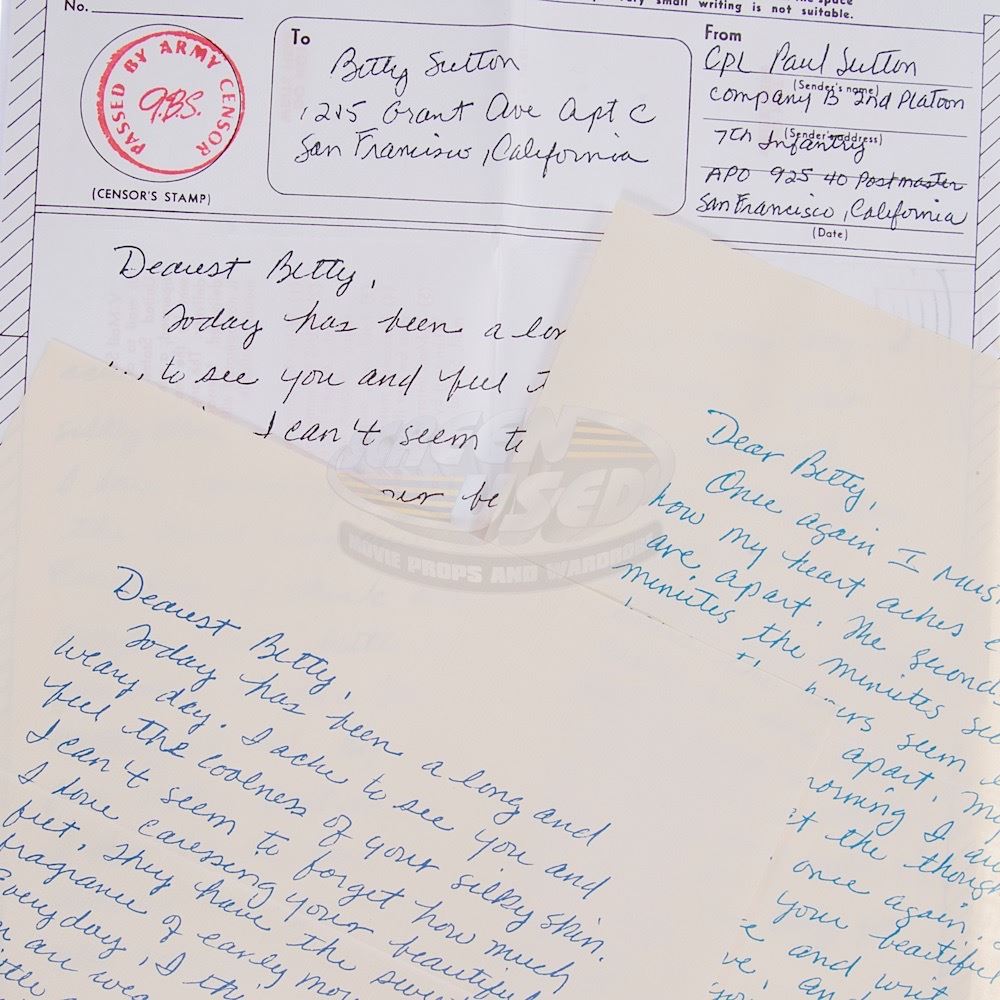 No.
the space
very small writing is not suitable.
PASSED BY ARMY CENSOR
G.B.S.
(CENSOR'S STAMP)
To
Betty Sutton
1215 Grant Ave Apt C
San Francisco, California
From
CPL Paul Sutton
(Sender's name)
Company B 2nd Platoon
(Sender's address)
7th Infantry
APO 925 40 Postmaster
San Francisco, California
(Date)
Dearest Betty,
Today has been a lon
to see you and feel
I can't seem to
SCREEN
USED
MOVIE PROPS AND WARDROBE
Dear Betty,
Once again I Mus
how my heart aches
are, apart. The second
minutes the minutes se
seem
apart. M
orning I
t the though
once again,
your beautiful
e and writ
ve, an
Dearest Betty,
Today has been a long and
weary day. I ache to see you and
feel the coolness of your silky skin.
I can't seem to forget how much
I love caressing your beautiful
feet. They have the
fragrance of early mo
Everyday, I thi
are wea